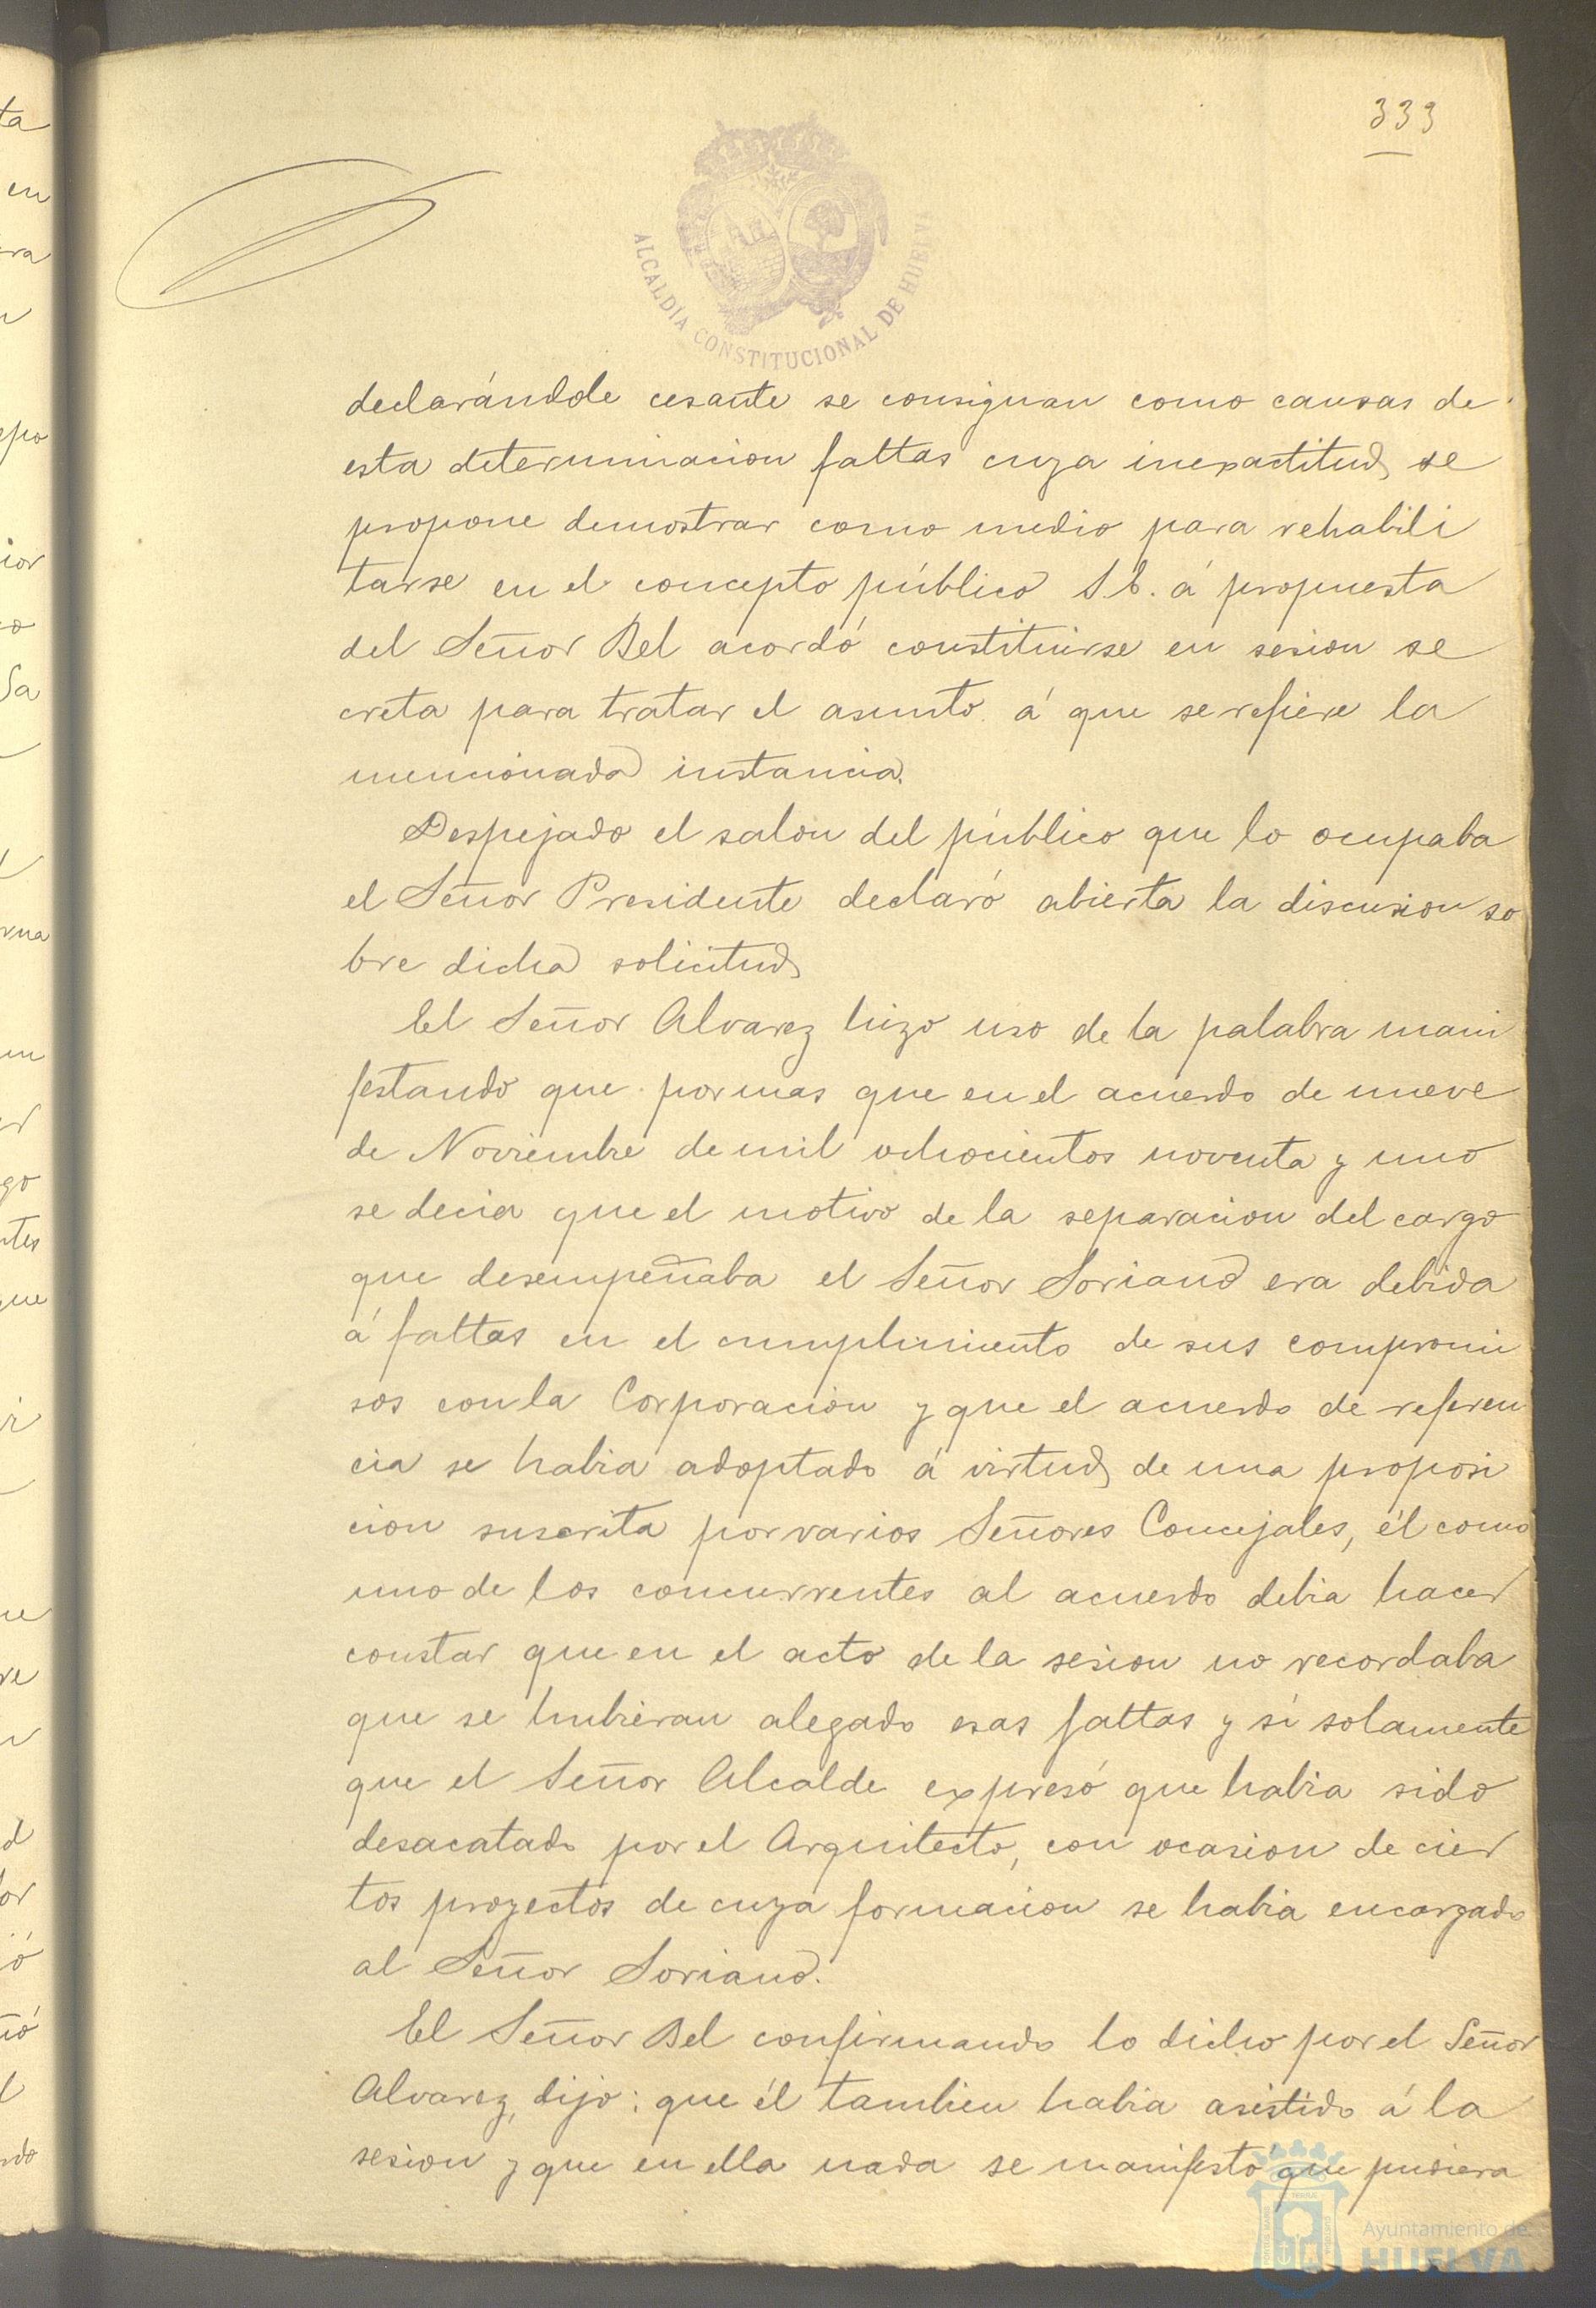 339
ALCALDÍA CONSTITUCIONAL DE HUELVA
declarándole cesante se consignan como causas de
esta determinacion faltas cuya inexactitud se
propone demostrar como medio para rehabili
tarse en el concepto público S. E. á propuesta
del Señor Bel acordó constituirse en sesion se
creta para tratar el asunto á que se refiere la
mencionada instancia.
Despejado el salon del público que lo ocupaba
el Señor Presidente declaró abierta la discusion so
bre dicha solicitud
El Señor Alvarez hizo uso de la palabra mani
festando que por mas que en el acuerdo de nueve
de Noviembre de mil ochocientos noventa y uno
se decia que el motivo de la separacion del cargo
que desempeñaba el Señor Soriano era debida
á faltas en el cumplimiento de sus compromi
sos con la Corporacion y que el acuerdo de referen
cia se habia adoptado á virtud de una proposi
cion suscrita por varios Señores Concejales, él como
uno de los concurrentes al acuerdo debia hacer
constar que en el acto de la sesion no recordaba
que se hubieran alegado esas faltas y sí solamente
que el Señor Alcalde expresó que habia sido
desacatado por el Arquitecto, con ocasion de cier
tos proyectos de cuya formacion se habia encargado
al Señor Soriano.
El Señor Bel confirmando lo dicho por el Señor
Alvarez, dijo: que él tambien habia asistido á la
sesion y que en ella nada se manifestó que pudiera
Ayuntamiento de
HUELVA